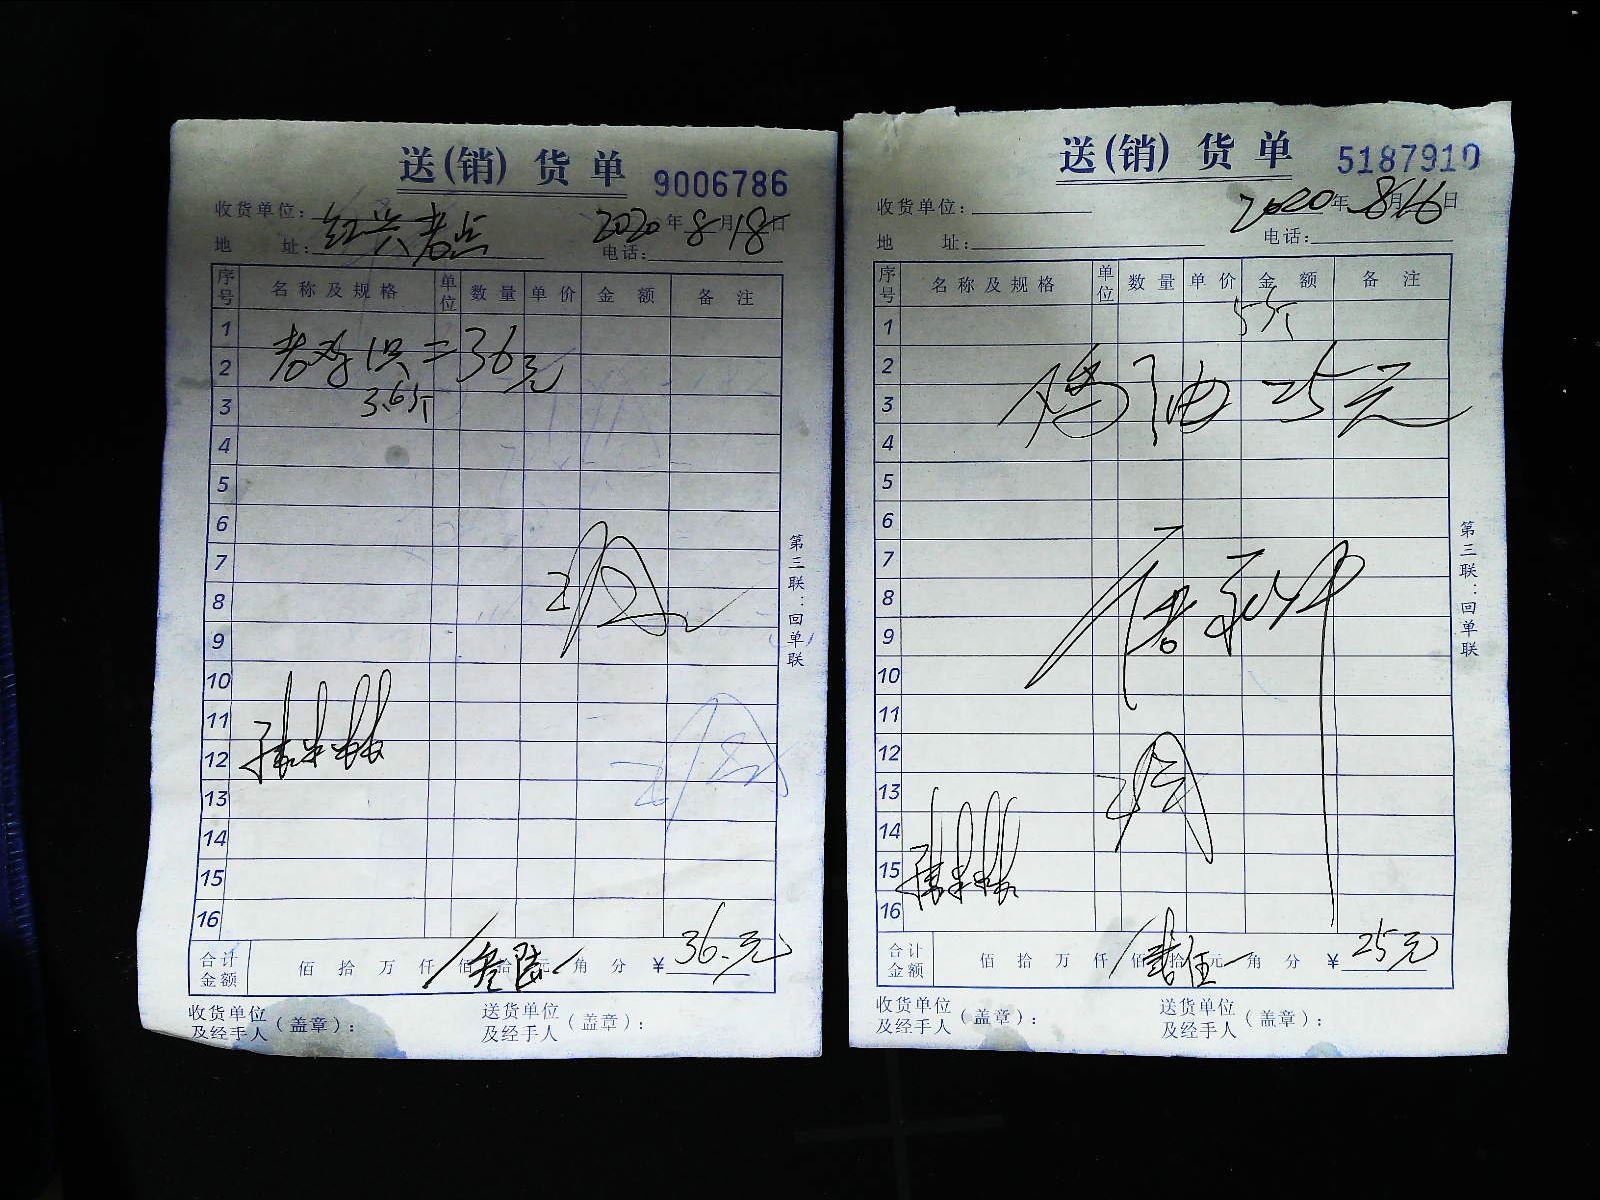 送(销)货单 9006786
收货单位: 2020年8月18日
地 址: 电话:
序号 名称及规格 单位 数量 单价 金额 备注
1
2 36元
3
4
5
6
7
8
9
10
11
12
13
14
15
16
合计金额 佰 拾 万 仟 佰 叁 拾 陆 元 角 分 ¥ 36.元
收货单位及经手人(盖章): 送货单位及经手人(盖章):
第三联:回单联
送(销)货单 5187910
收货单位: 2020年8月16日
地 址: 电话:
序号 名称及规格 单位 数量 单价 金额 备注
1 5个
2
3 鸡油 25元
4
5
6
7
8
9
10
11
12
13
14
15
16
合计金额 佰 拾 万 仟 佰 拾 元 角 分 ¥ 25元
收货单位及经手人(盖章): 送货单位及经手人(盖章):
第三联:回单联